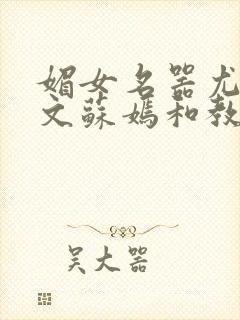 媚女名器尤
文蘇媽和教
吴大器